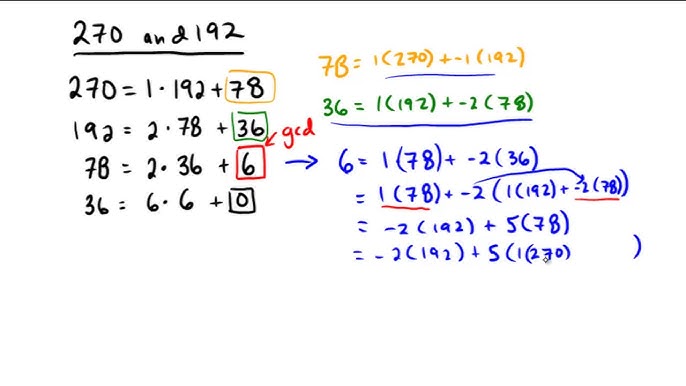 270 and 192
270 = 1 · 192 + 78
192 = 2 · 78 + 36
78 = 2 · 36 + 6
36 = 6 · 6 + 0
gcd
78 = 1(270) + -1(192)
36 = 1(192) + -2(78)
6 = 1(78) + -2(36)
= 1(78) + -2(1(192) + -2(78))
= -2(192) + 5(78)
= -2(192) + 5(1(270) )